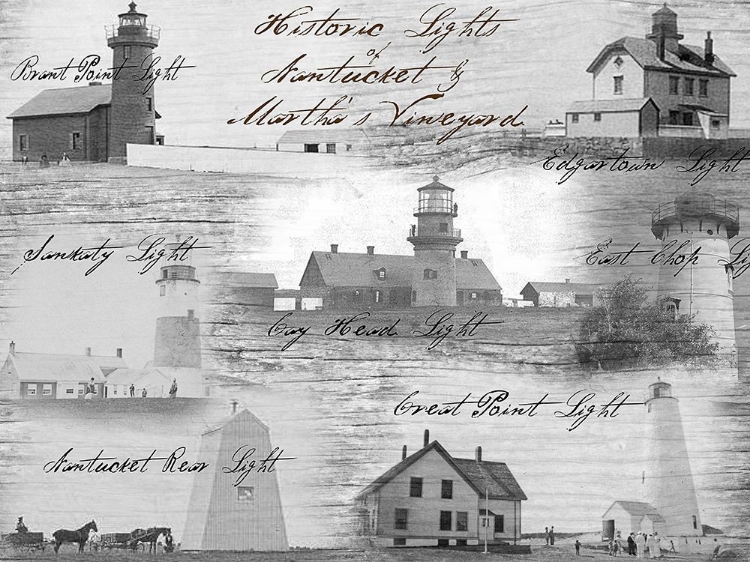 Historic Lights
of
Nantucket &
Martha's Vineyard
Brant Point Light
Edgartown Light
Sankaty Light
East Chop Lig
Gay Head Light
Great Point Light
Nantucket Rear Light